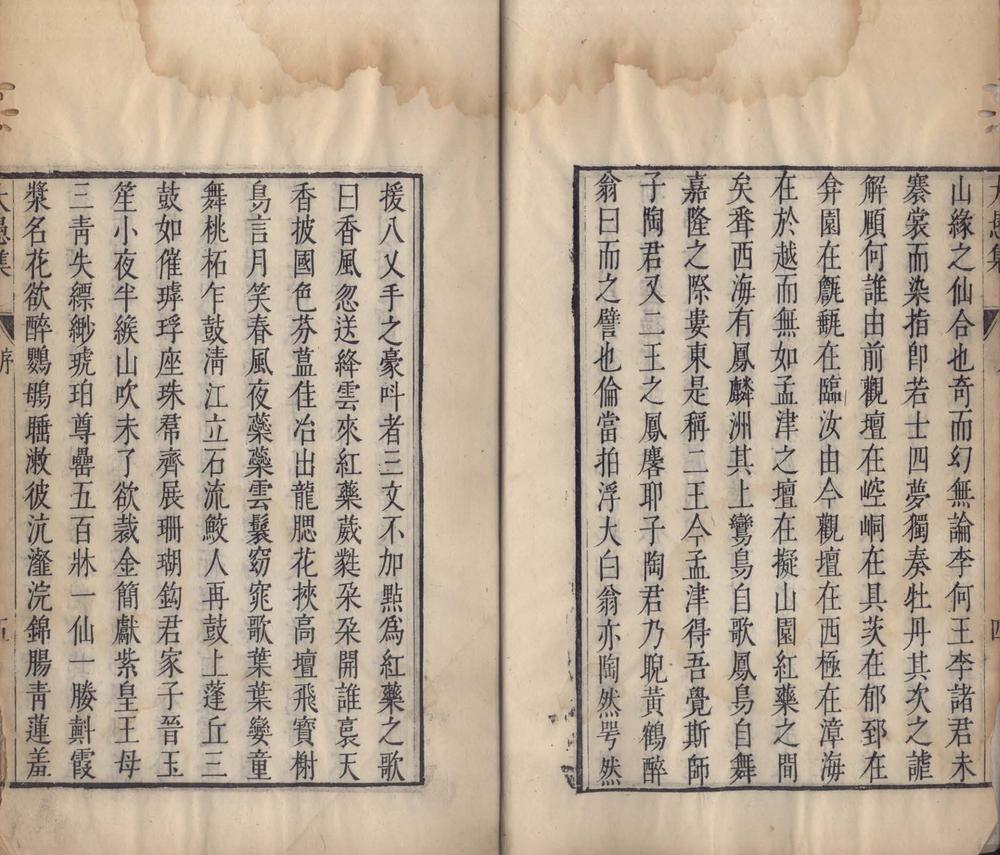 山緣之仙合也奇而幻無論李何王李諸君未
褰裳而染指卽若士四夢獨奏牡丹其次之謔
解頤何誰由前觀壇在崆峒在具茨在郁郅在
弇園在甔甀在臨汝由今觀壇在西極在漳海
在於越而無如孟津之壇在擬山園紅藥之間
矣聱西海有鳳麟洲其上鸞鳥自歌鳳鳥自舞
嘉隆之際婁東是稱二王今孟津得吾覺斯師
子陶君又二王之鳳麐耶子陶君乃睨黃鶴醉
翁曰而之譬也倫當拍浮大白翁亦陶然咢然
援八乂手之豪呌者三文不加點爲紅藥之歌
曰香風忽送絳雲來紅藥葳甤朶朶開誰裛天
香披國色芬葢佳冶出龍腮花挾高壇飛寶榭
鳥言月笑春風夜藥藥雲鬟窈窕歌葉葉孌童
舞桃柘乍鼓淸江立石流鮫人再鼓上蓬丘三
鼓如催璋琈座珠帬齊展珊瑚鈎君家子晉玉
笙小夜半緱山吹未了欲裁金簡獻紫皇王母
三靑失縹緲琥珀尊罍五百牀一仙一勝㪺霞
漿名花欲醉鸚鵡睡漱彼沆瀣浣錦腸靑蓮羞
大愚集
序
五